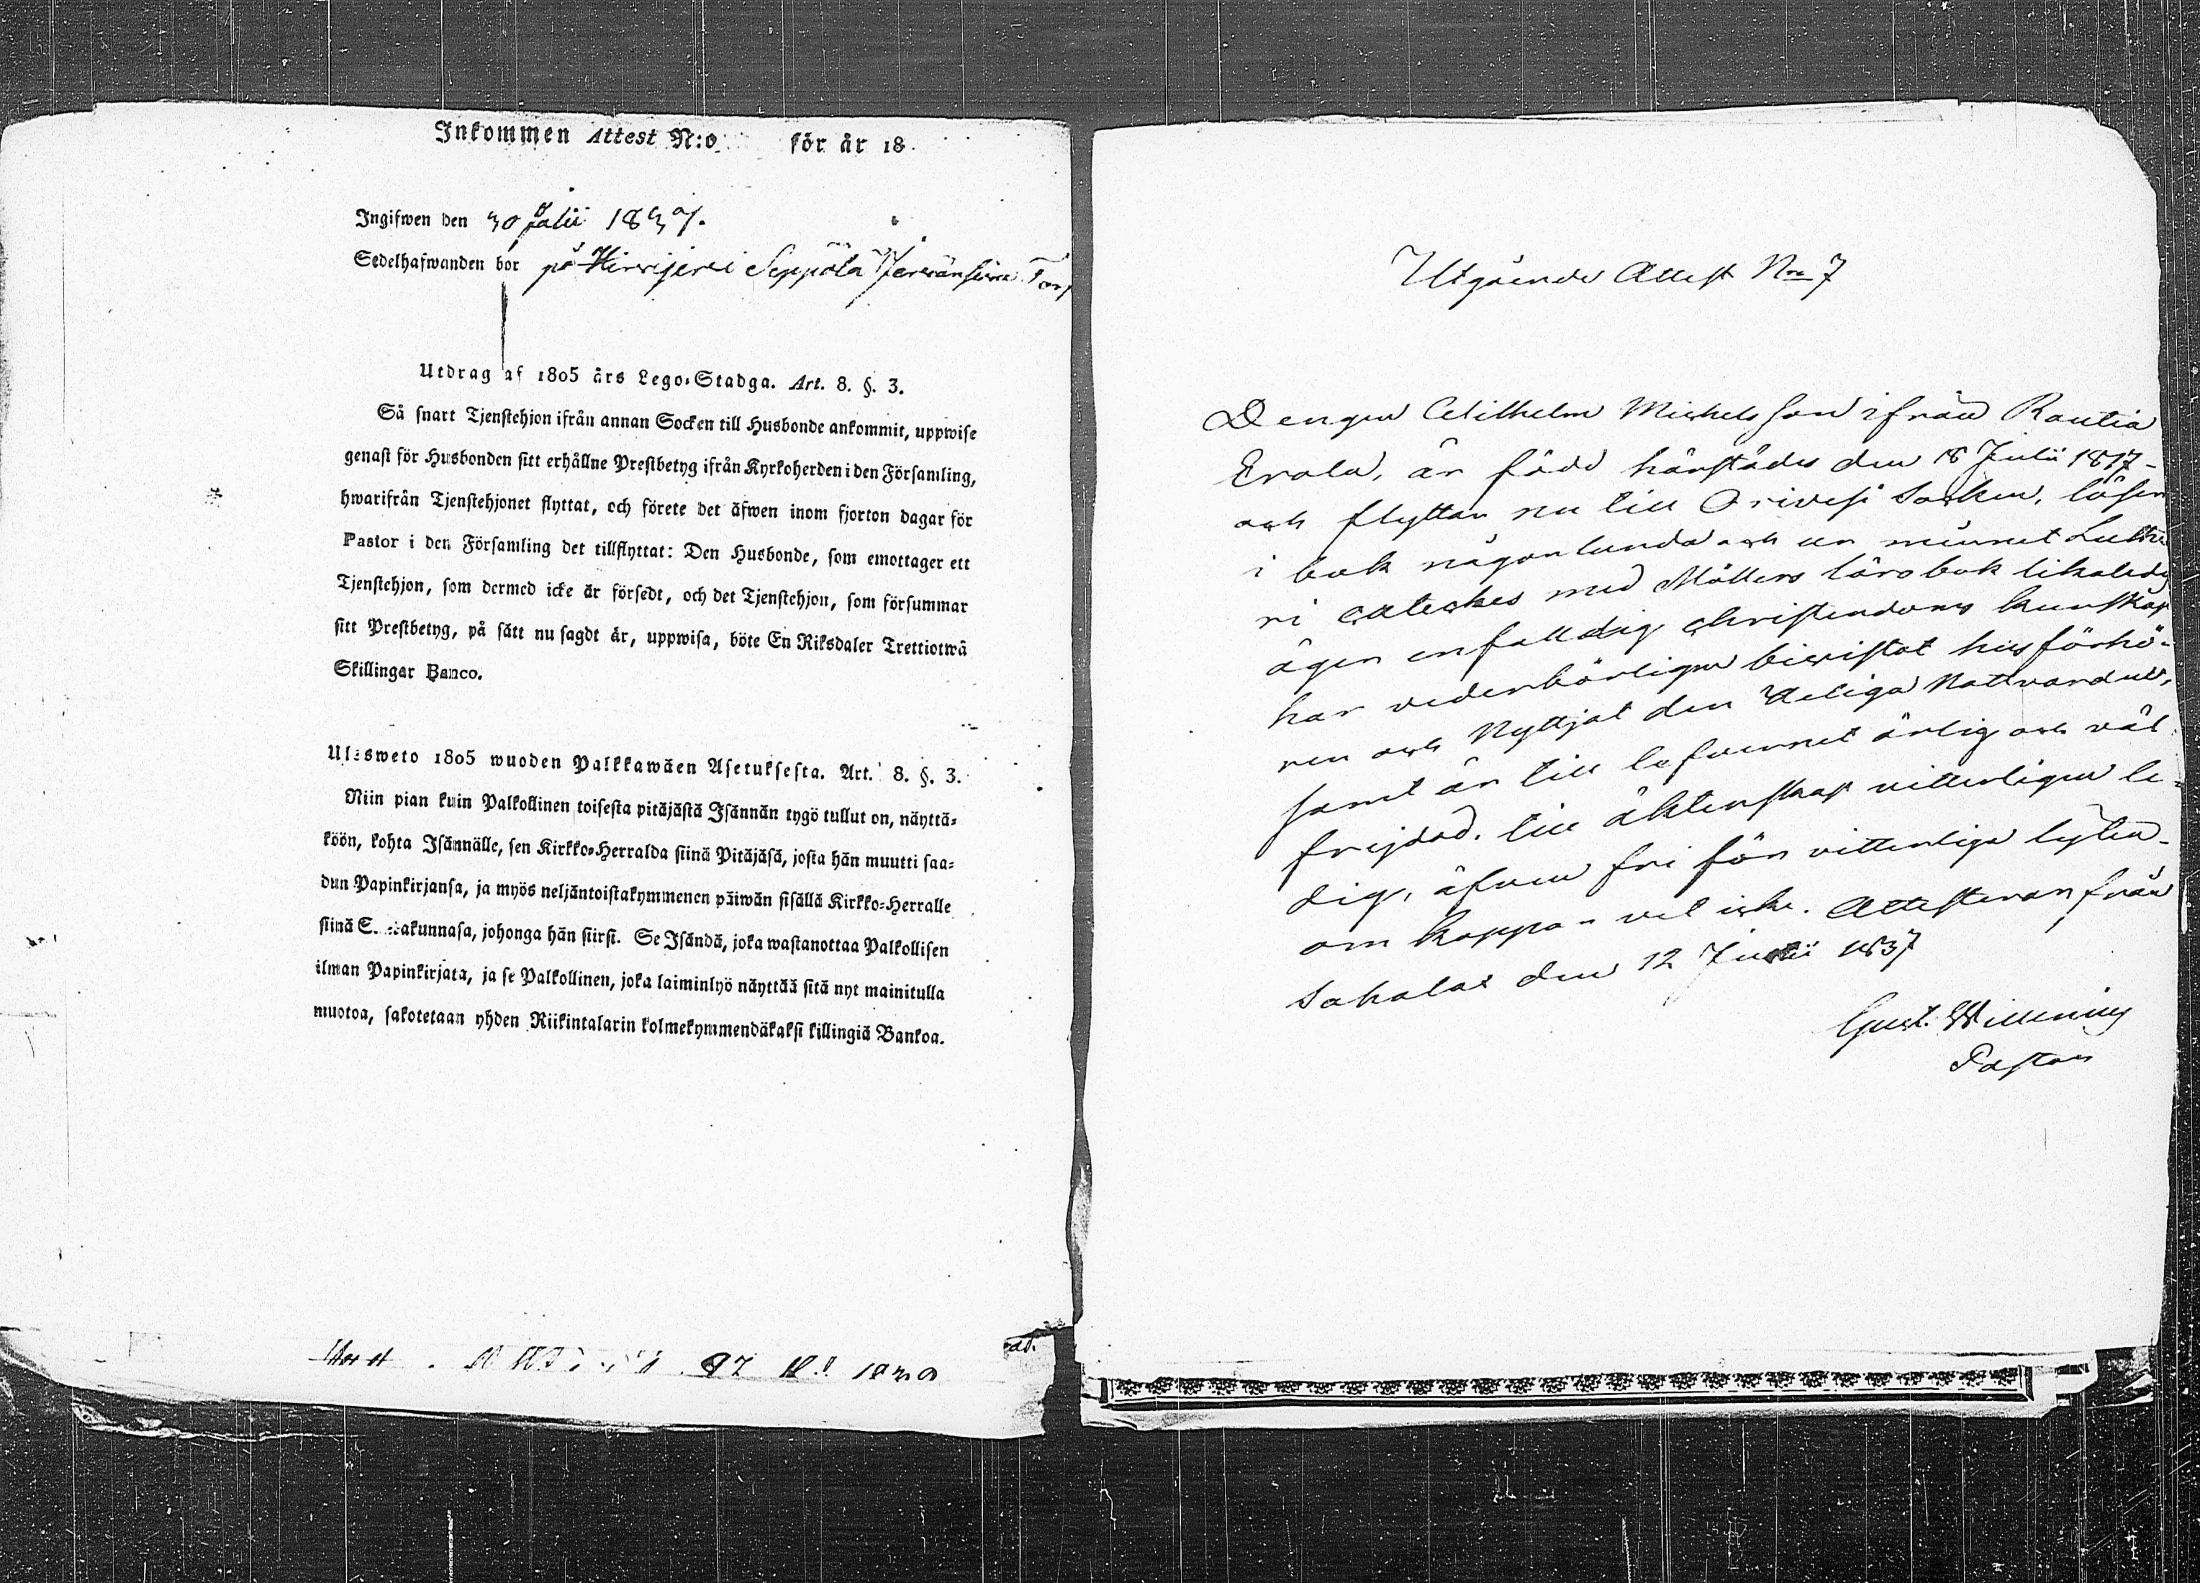 Inkommen Attest N:o för år 18
Ingifwen den 30 Julii 1837.
Sedelhafwanden bor på Hirvijervi Seppälä Torp
Utdrag af 1805 års Lego-Stadga. Art. 8. §. 3.
Så snart Tjenstehjon ifrån annan Socken till Husbonde ankommit, uppwise
genast för Husbonden sitt erhållne Prestbetyg ifrån Kyrkoherden i den Församling,
hwarifrån Tjenstehjonet flyttat, och förete det äfwen inom fjorton dagar för
Pastor i den Församling det tillflyttat: Den Husbonde, som emottager ett
Tjenstehjon, som dermed icke är försedt, och det Tjenstehjon, som försummar
sitt Prestbetyg, på sätt nu sagdt är, uppwisa, böte En Riksdaler Trettiotwå
Skillingar Banco.
Ulosweto 1805 wuoden Palkkawäen Asetuksesta. Art. 8. §. 3.
Niin pian kuin Palkollinen toisesta pitäjästä Isännän tygö tullut on, näyttä-
köön, kohta Isännälle, sen Kirkko-Herralda siinä Pitäjäsä, josta hän muutti saa-
dun Papinkirjansa, ja myös neljäntoistakymmenen päiwän sisällä Kirkko-Herralle
siinä Seurakunnasa, johonga hän siirsi. Se Isändä, joka wastanottaa Palkollisen
ilman Papinkirjata, ja se Palkollinen, joka laiminlyö näyttää sitä nyt mainitulla
muotoa, sakotetaan yhden Riikintalarin kolmekymmendäkaksi killingiä Bankoa.
Utgående Attest No 7
Drengen Wilhelm Michelsson ifrån Rautia
Erola, är född härstädes den 18 Julii 1817-
och flyttar nu till Orivesi Socken, läser
i bok någorlunda och ur minnet Luthe
ri Cateches med Möllers lärobok likaledes
äger enfaldig christendoms kunskap
har vederbörligen bievistat husförhö-
ren och Nyttjat den Heliga Nattvarden,
samt är till lefvernet ärlig och väl
frejdad. till äktenskap vitterligen le-
dig, äfven fri för vitterliga lyten-
om koppo- vet icke. Attesteras från
Sahalax den 12 Julii 1837
Gust. Willenius
Pastor